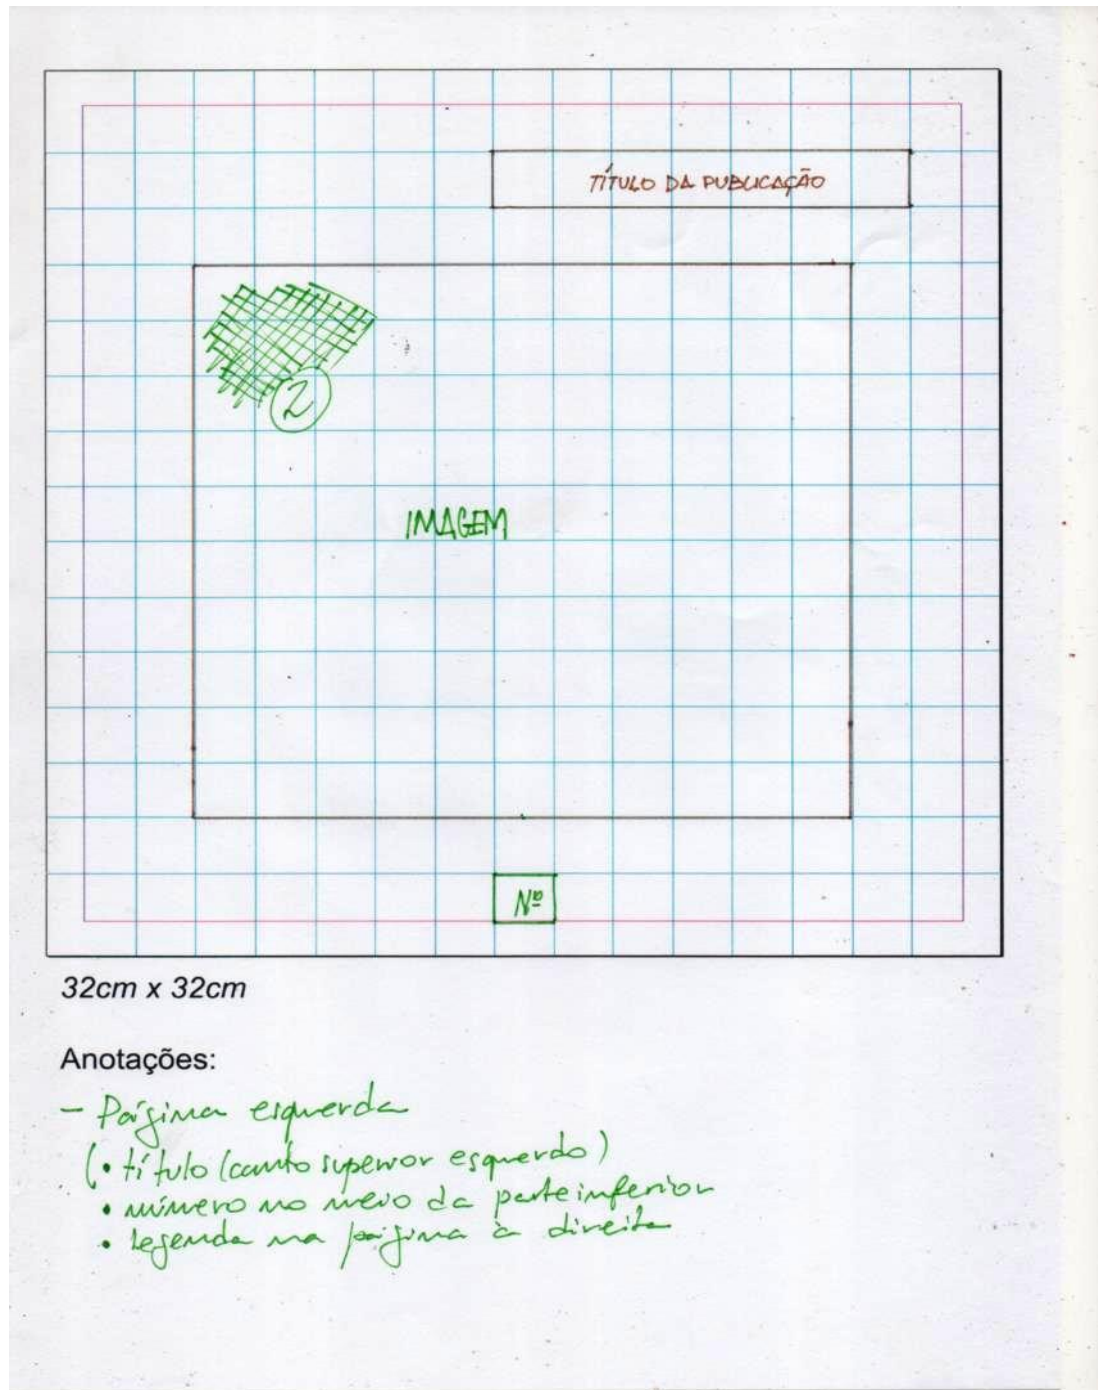 TÍTULO DA PUBLICAÇÃO
2
IMAGEM
Nº
32cm x 32cm
Anotações:
- Página esquerda
(• título (canto superior esquerdo)
• número no meio da parte inferior
• legenda na página à direita